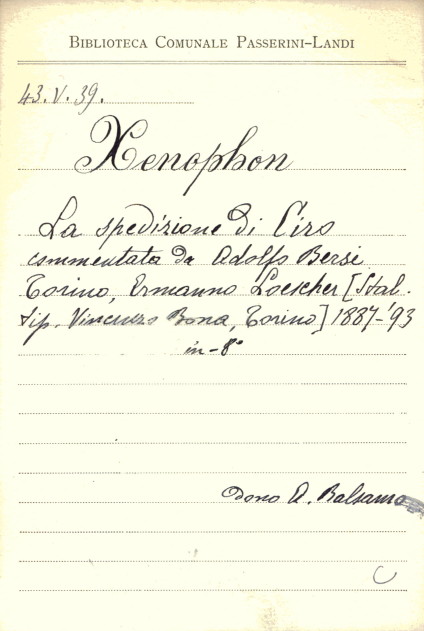 BIBLIOTECA COMUNALE PASSERINI-LANDI
43.V.39.
Xenophon
La spedizione di Ciro
commentata da Adolfo Bersi
Torino, Ermanno Loescher [Stab.
tip. Vincenzo Bona, Torino] 1887-'93
in-8°
Dono A. Balsamo
C